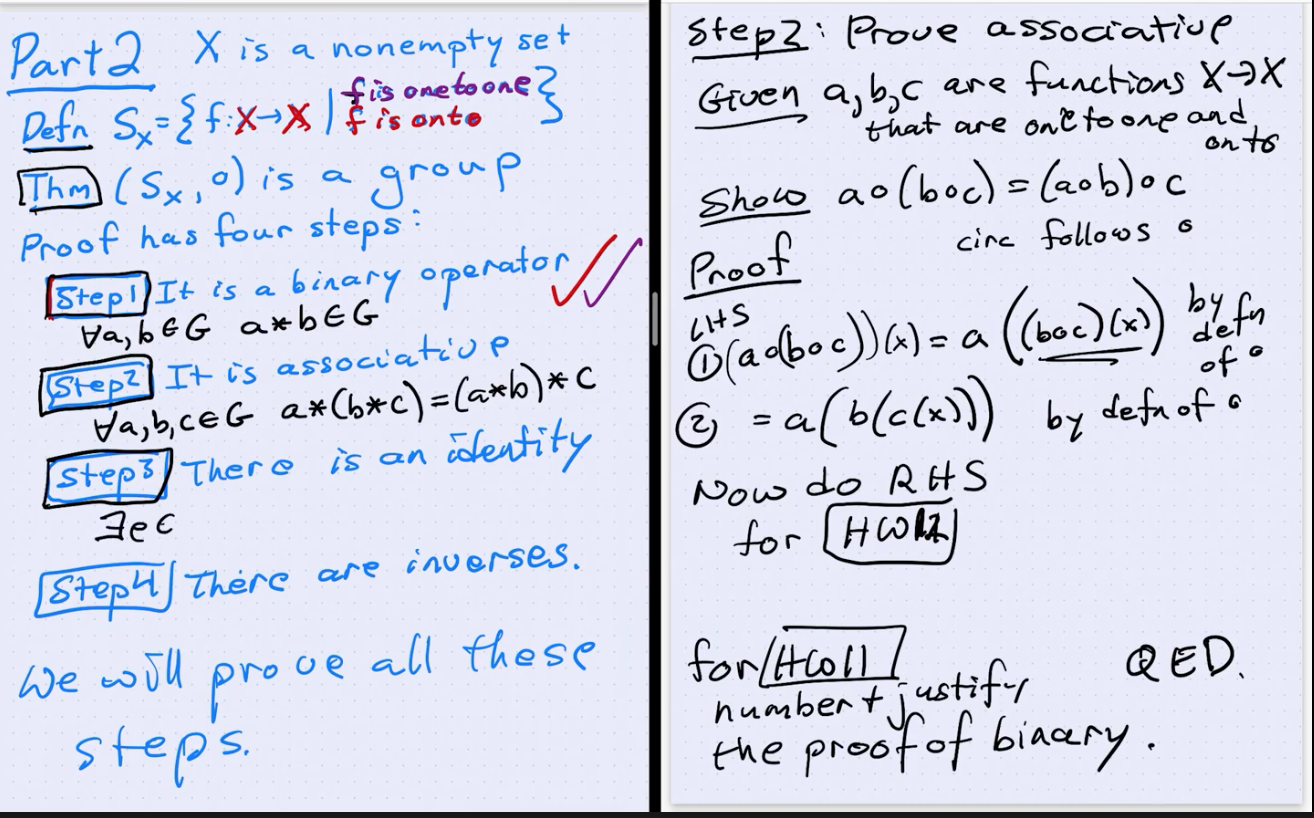 Part 2 X is a nonempty set
Defn Sx = { f: X→X | f is one to one
f is onto }
Thm (Sx, ∘) is a group
Proof has four steps:
Step1 It is a binary operator ✓✓
∀a,b∈G a*b∈G
Step2 It is associative
∀a,b,c∈G a*(b*c)=(a*b)*c
Step3 There is an identity
∃e∈
Step4 There are inverses.
We will prove all these
steps.
Step2: Prove associative
Given a,b,c are functions X→X
that are one to one and
onto
Show a∘(b∘c)=(a∘b)∘c
circ follows ∘
Proof
LHS
① (a∘(b∘c))(x) = a((b∘c)(x)) by defn of ∘
② = a(b(c(x))) by defn of ∘
Now do RHS
for HW
for HW11 QED.
number + justify
the proof of binary.